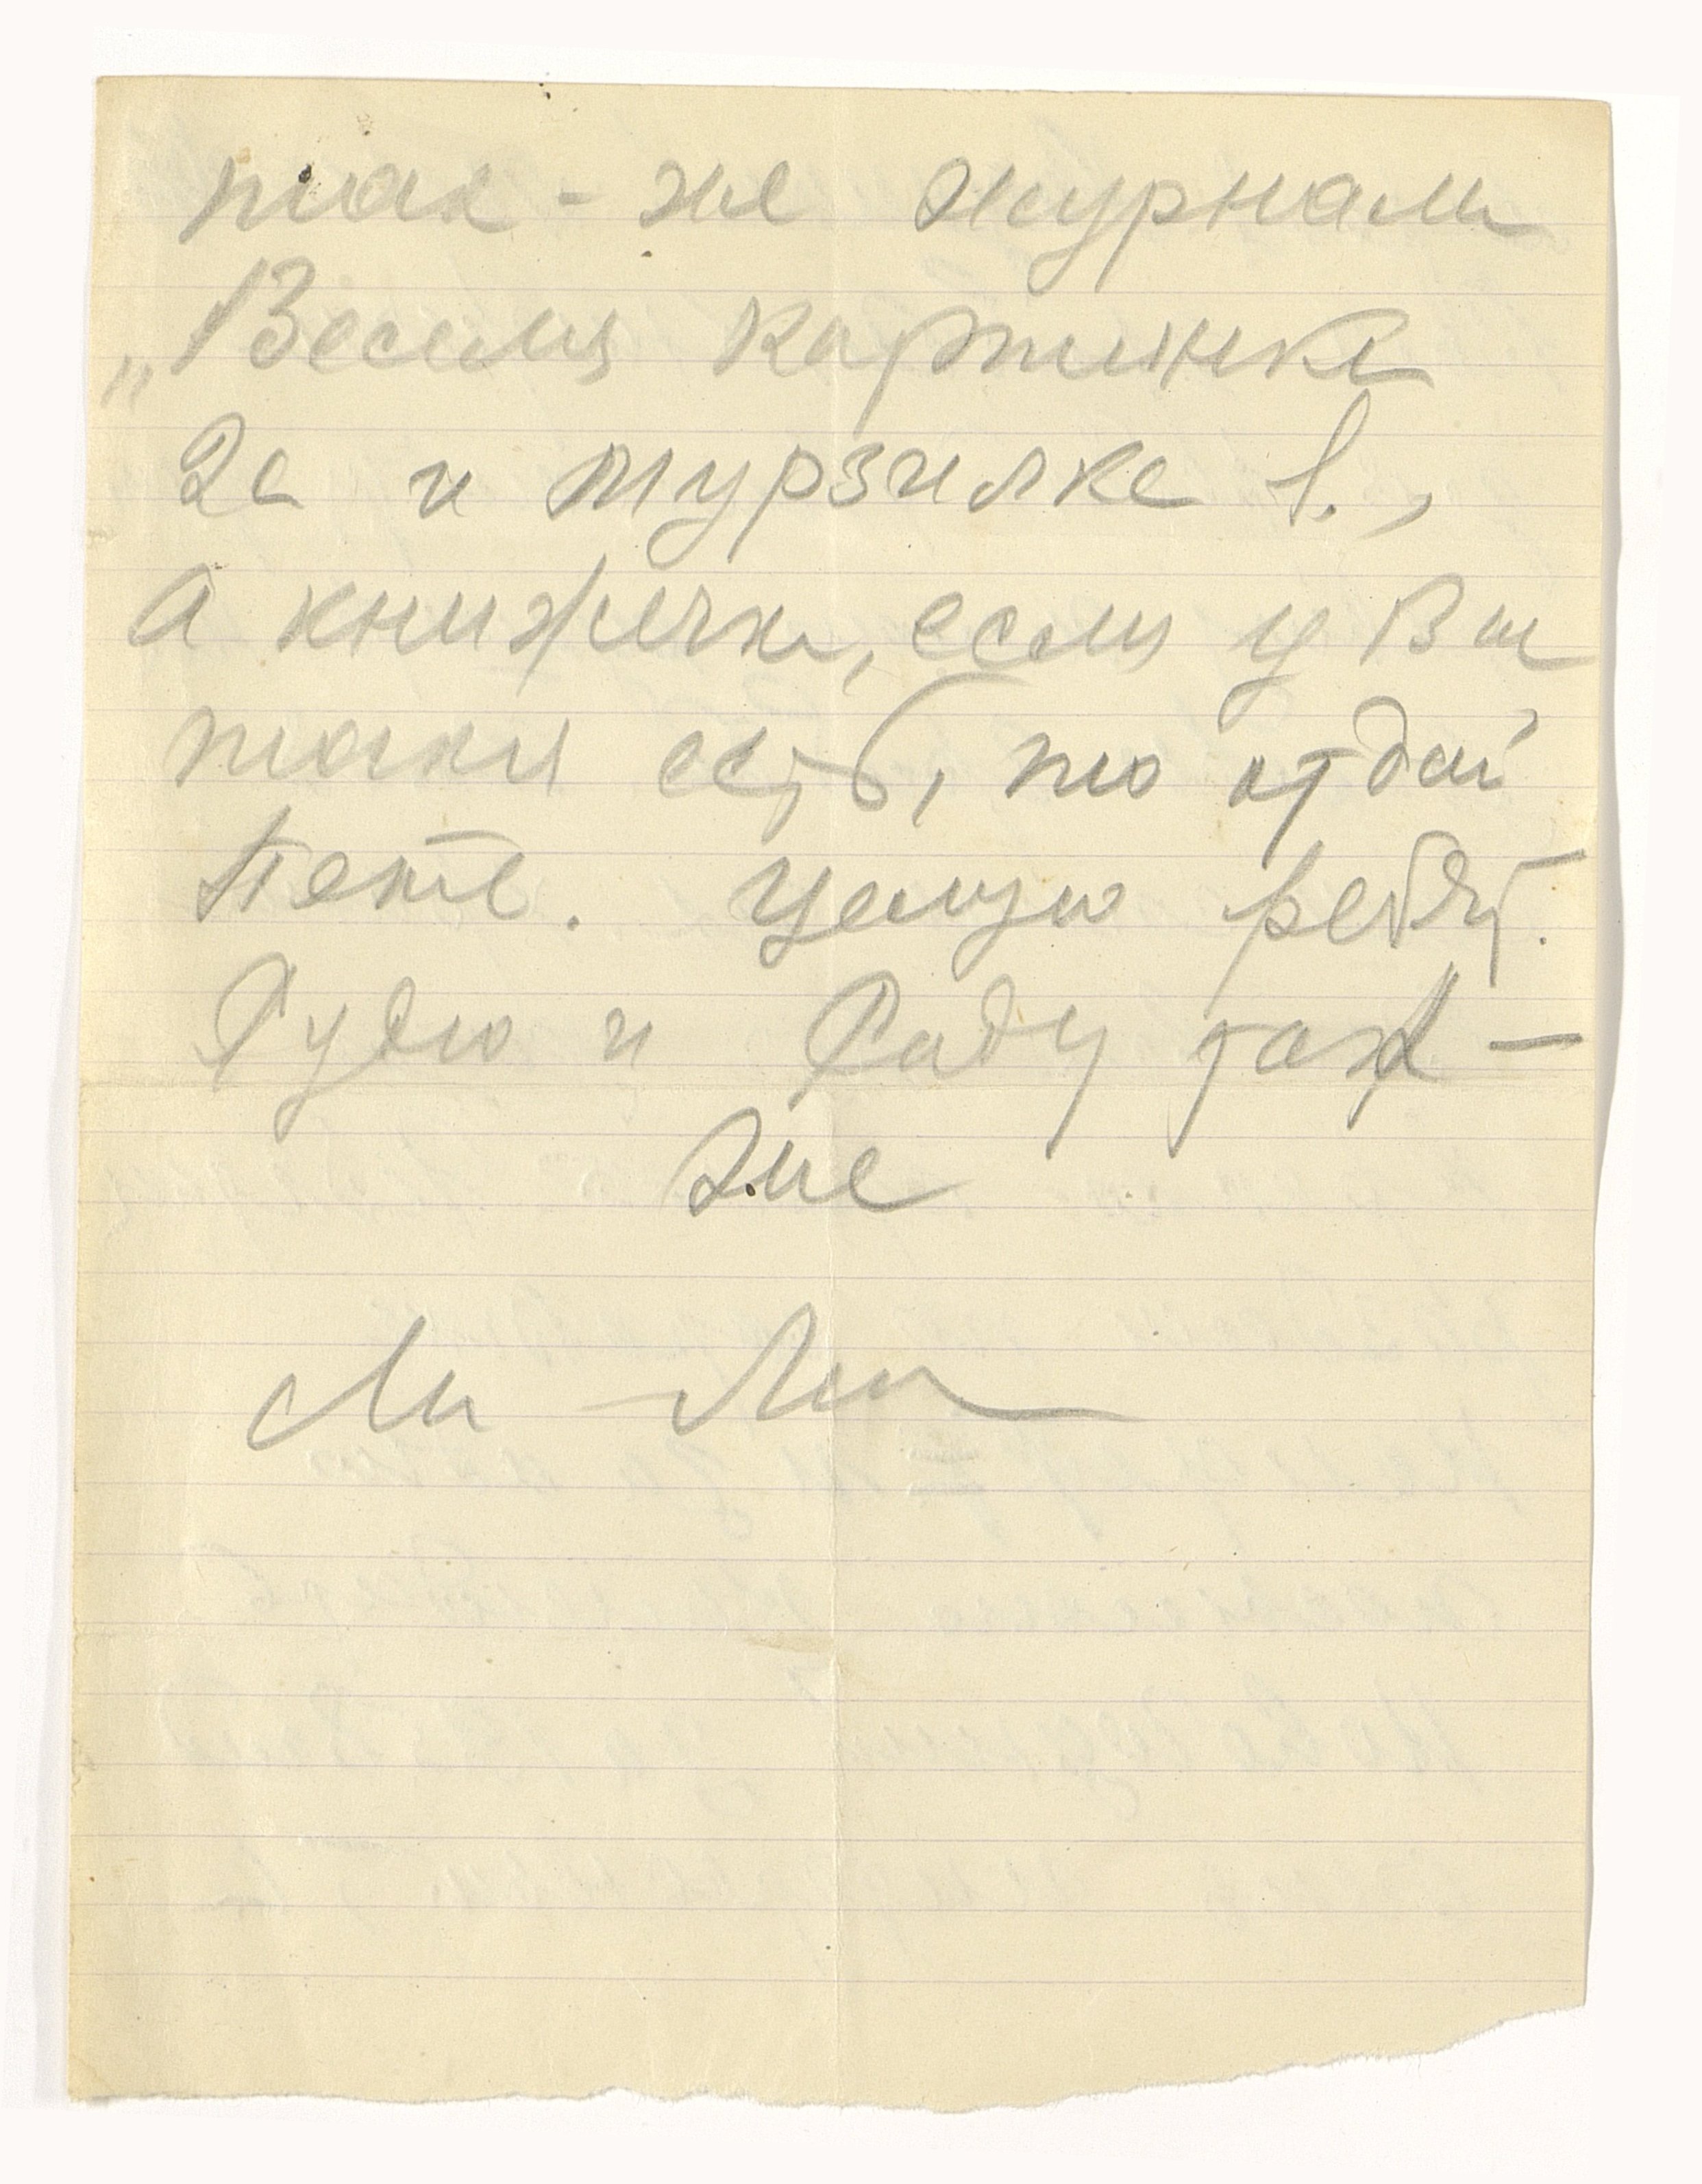 так-же журнали
„Весели картинке
2е и мурзилке 1.,
а книжечки, если у Ви
таки есть, то отдай
Пете. Целую ребят.
Рудю и Раду так-
же